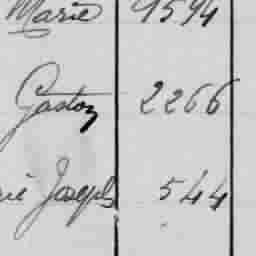 Marie 1594
Gaston 2266
rie Joseph 544